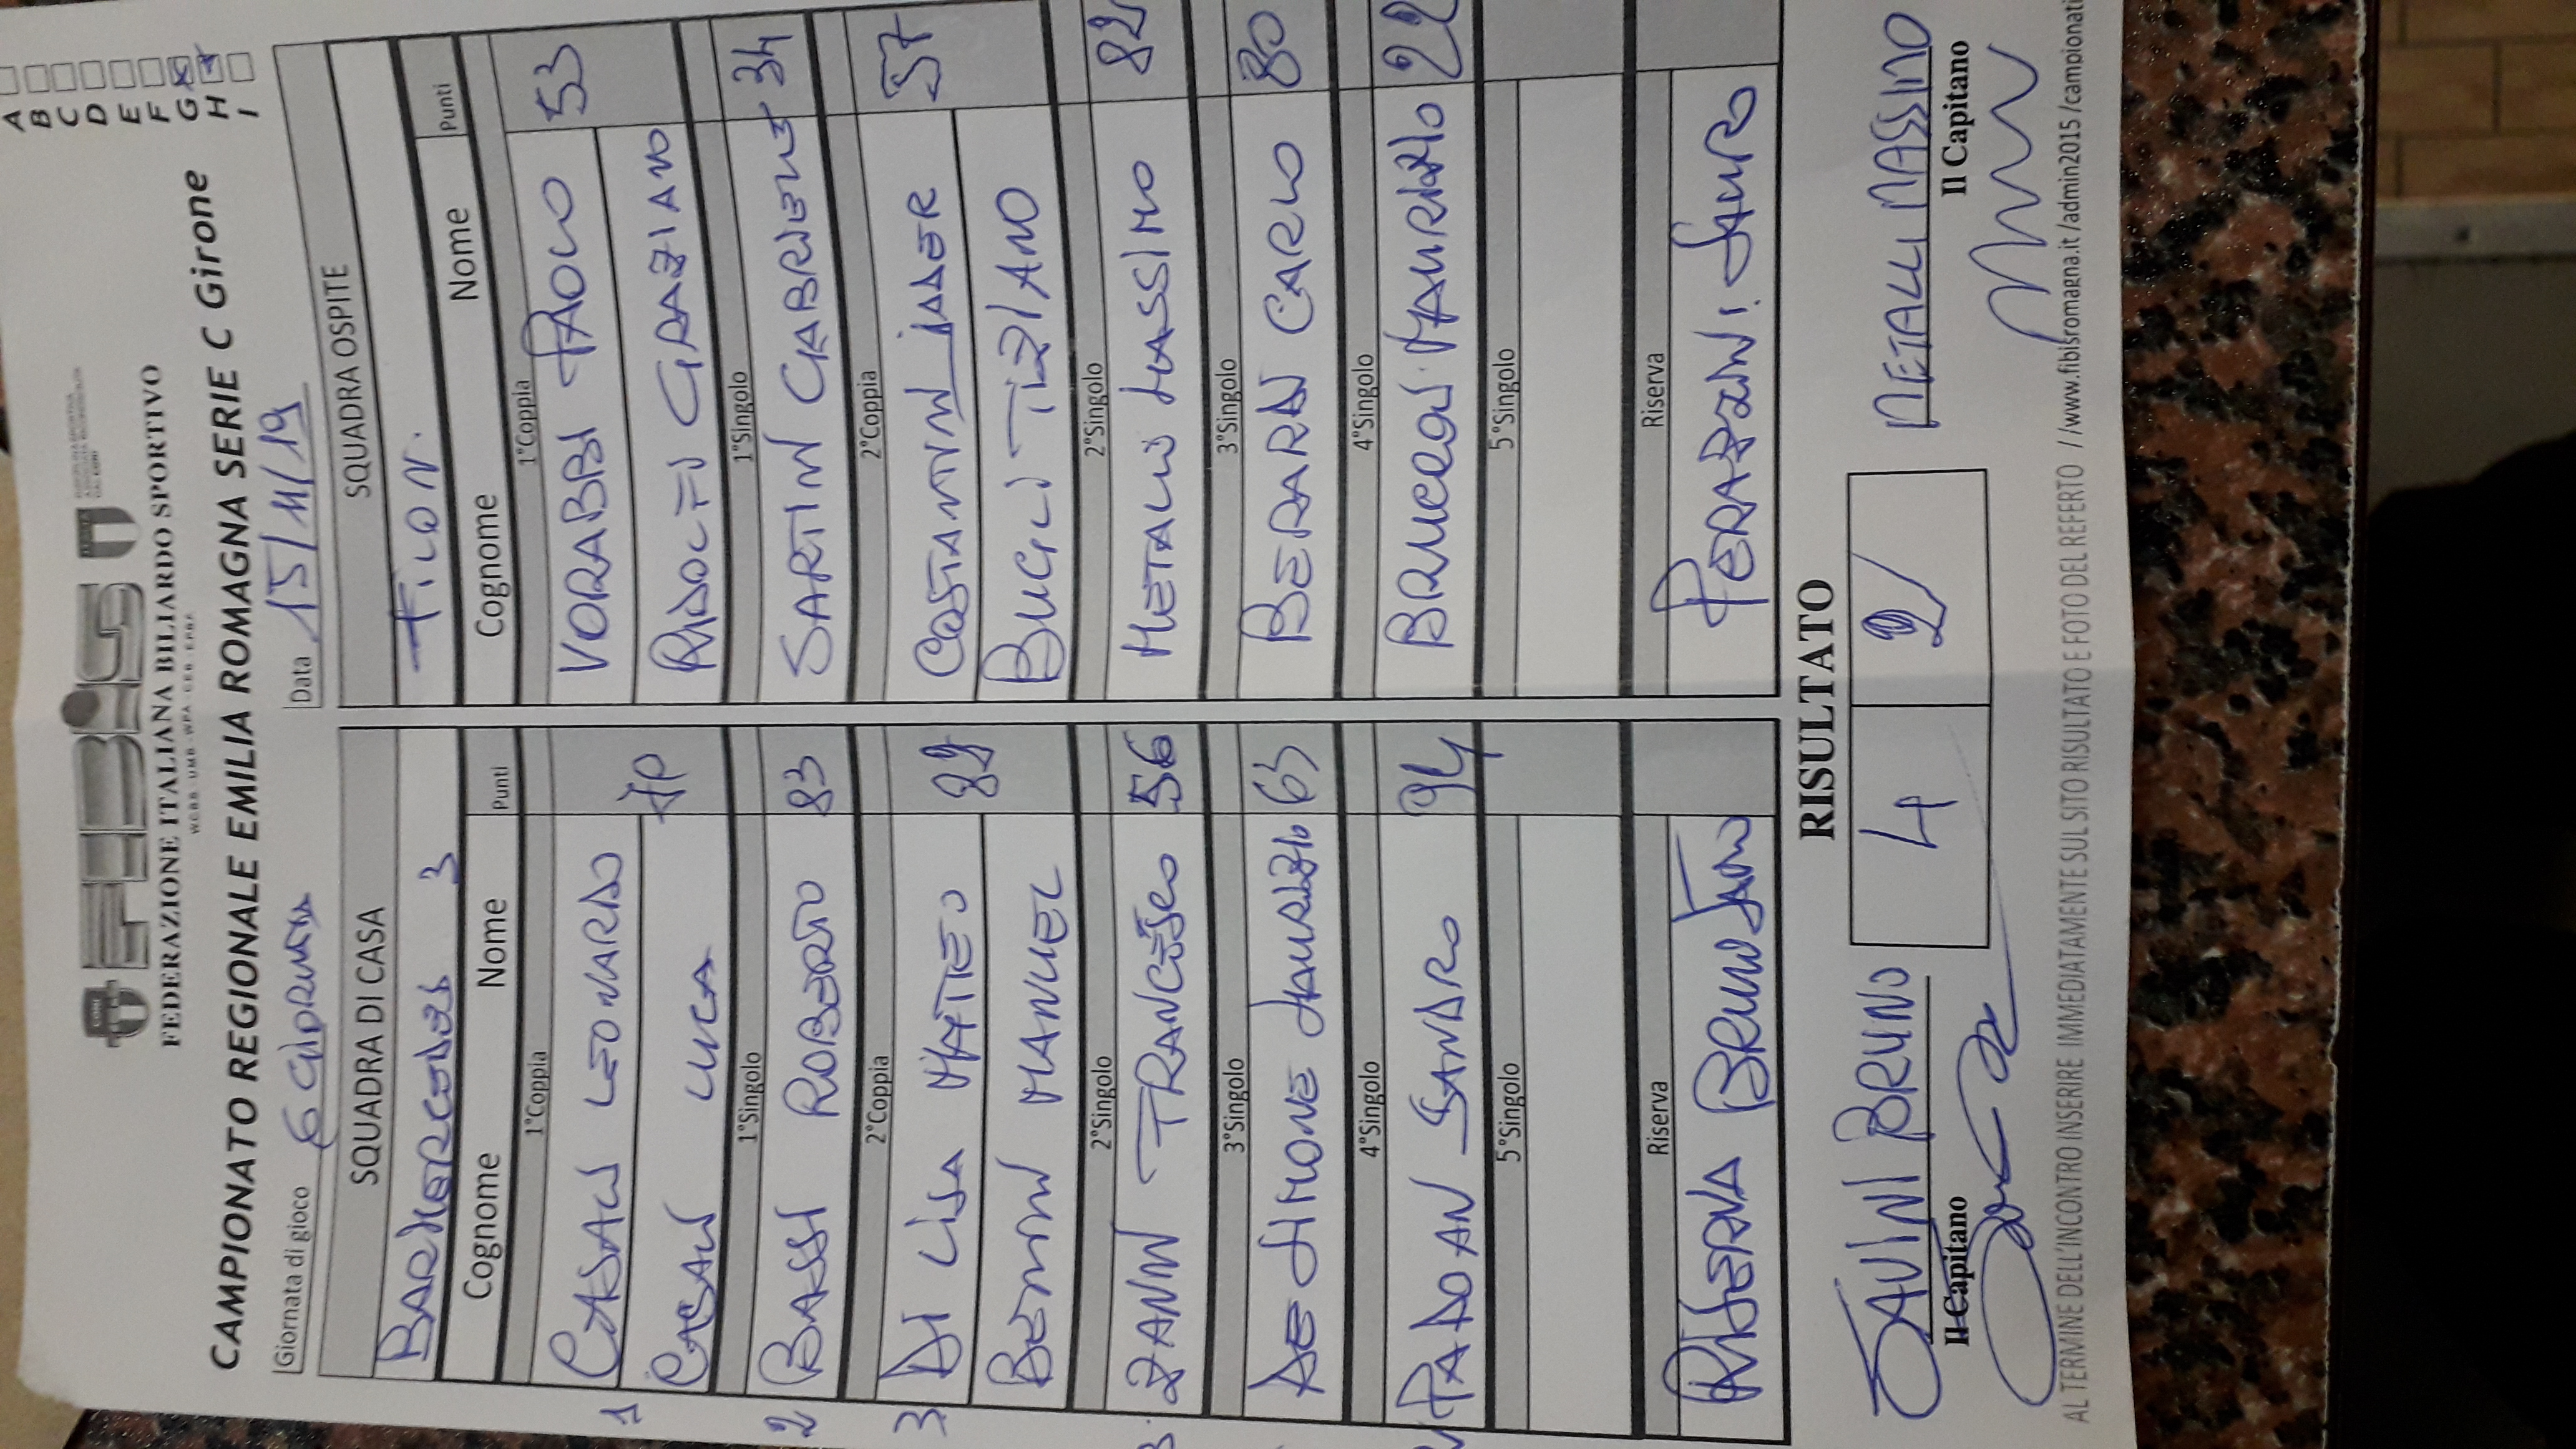 FEDERAZIONE ITALIANA BILIARDO SPORTIVO
CAMPIONATO REGIONALE EMILIA ROMAGNA SERIE C Girone
A
B
C
D
E
F
G
H
I
Giornata di gioco 6 GIORNATA Data 15/11/19
SQUADRA DI CASA
3
Cognome Nome Punti
1°Coppia
1 CASALI LEONARDO
CASALI LUCA
1°Singolo
2 BASSI ROBERTO 83
2°Coppia
3 DI LISA MATTEO 82
BERNINI MANUEL
2°Singolo
ZANNI FRANCESCO 56
3°Singolo
DE SIMONE MAURIZIO 63
4°Singolo
PADOAN SANDRO 94
5°Singolo
Riserva
BRUNO
SQUADRA OSPITE
FILON.
Cognome Nome Punti
1°Coppia
VORABBI PAOLO 53
RIDOLFI GRAZIANO
1°Singolo
SARTINI GABRIELE 34
2°Coppia
COSTANTINI JADER 57
BUGLI TIZIANO
2°Singolo
METALLI MASSIMO 82
3°Singolo
BERARDI CARLO 80
4°Singolo
BRUCCOLI MAURIZIO 22
5°Singolo
Riserva
PERAZZINI SAURO
RISULTATO
SAVINI BRUNO 4 2 METALLI MASSIMO
Il Capitano Il Capitano
AL TERMINE DELL'INCONTRO INSERIRE IMMEDIATAMENTE SUL SITO RISULTATO E FOTO DEL REFERTO //www.fibisromagna.it/admin2015/campionati